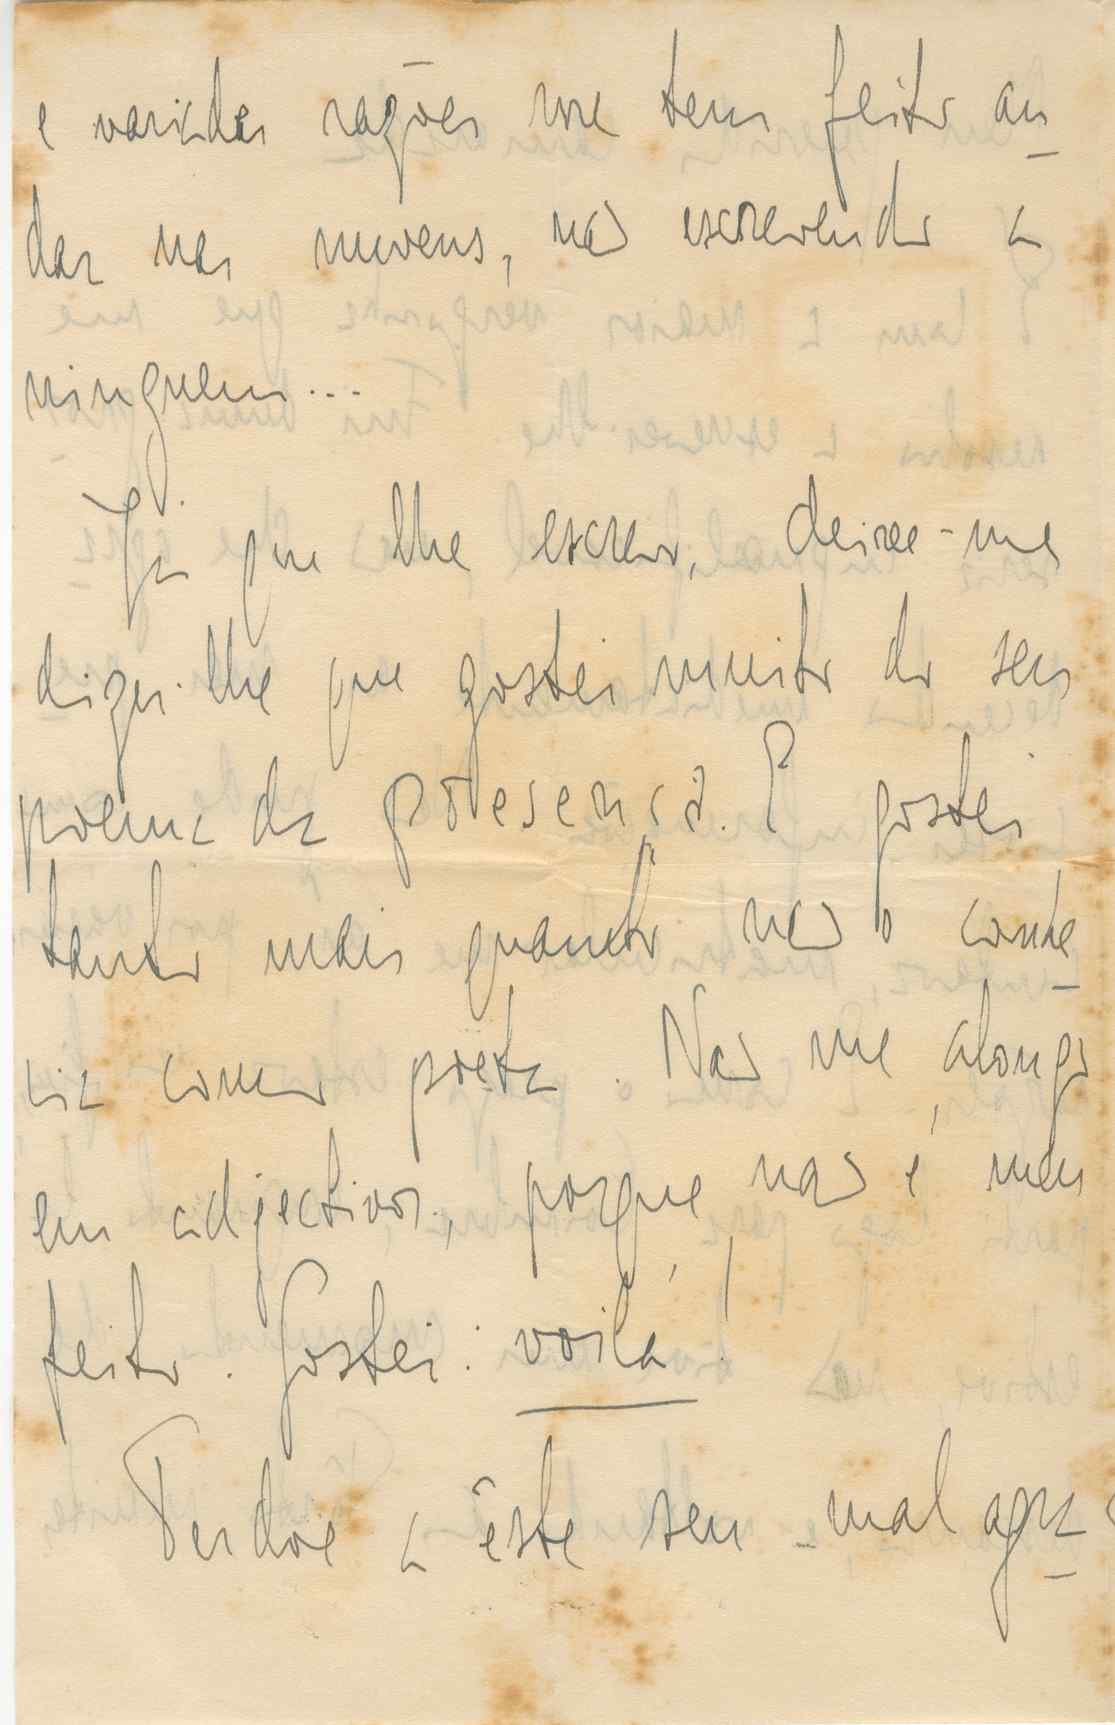 e variadas razões me tem feito an-
dar nas nuvens, não escrevendo a
ninguem...
Já que lhe escrevo, deixe-me
dizer-lhe que gostei muito do seu
poema da presença. E gostei
tanto mais quanto não o conhe-
cia como poeta. Não me alongo
em adjectivos, porque não é meu
feito. Gostei: voilà!
Perdoe a êste seu mal agra-